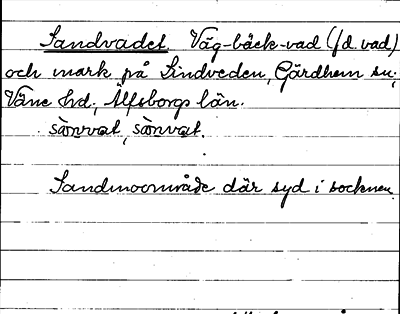 Sandvadet Väg-bäck-vad (f.d. vad)
och mark på Lindveden, Gärdhem sn;
Väne hd; Älfsborgs län.
sànvat, sànvat.
Sandmoområde där syd i socknen.